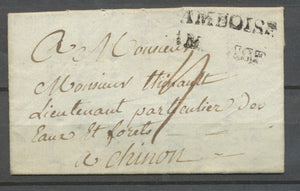 AMBOISE
A Monsieur
Monsieur
Lieutenant particulier des
Eaux et forets
a chinon